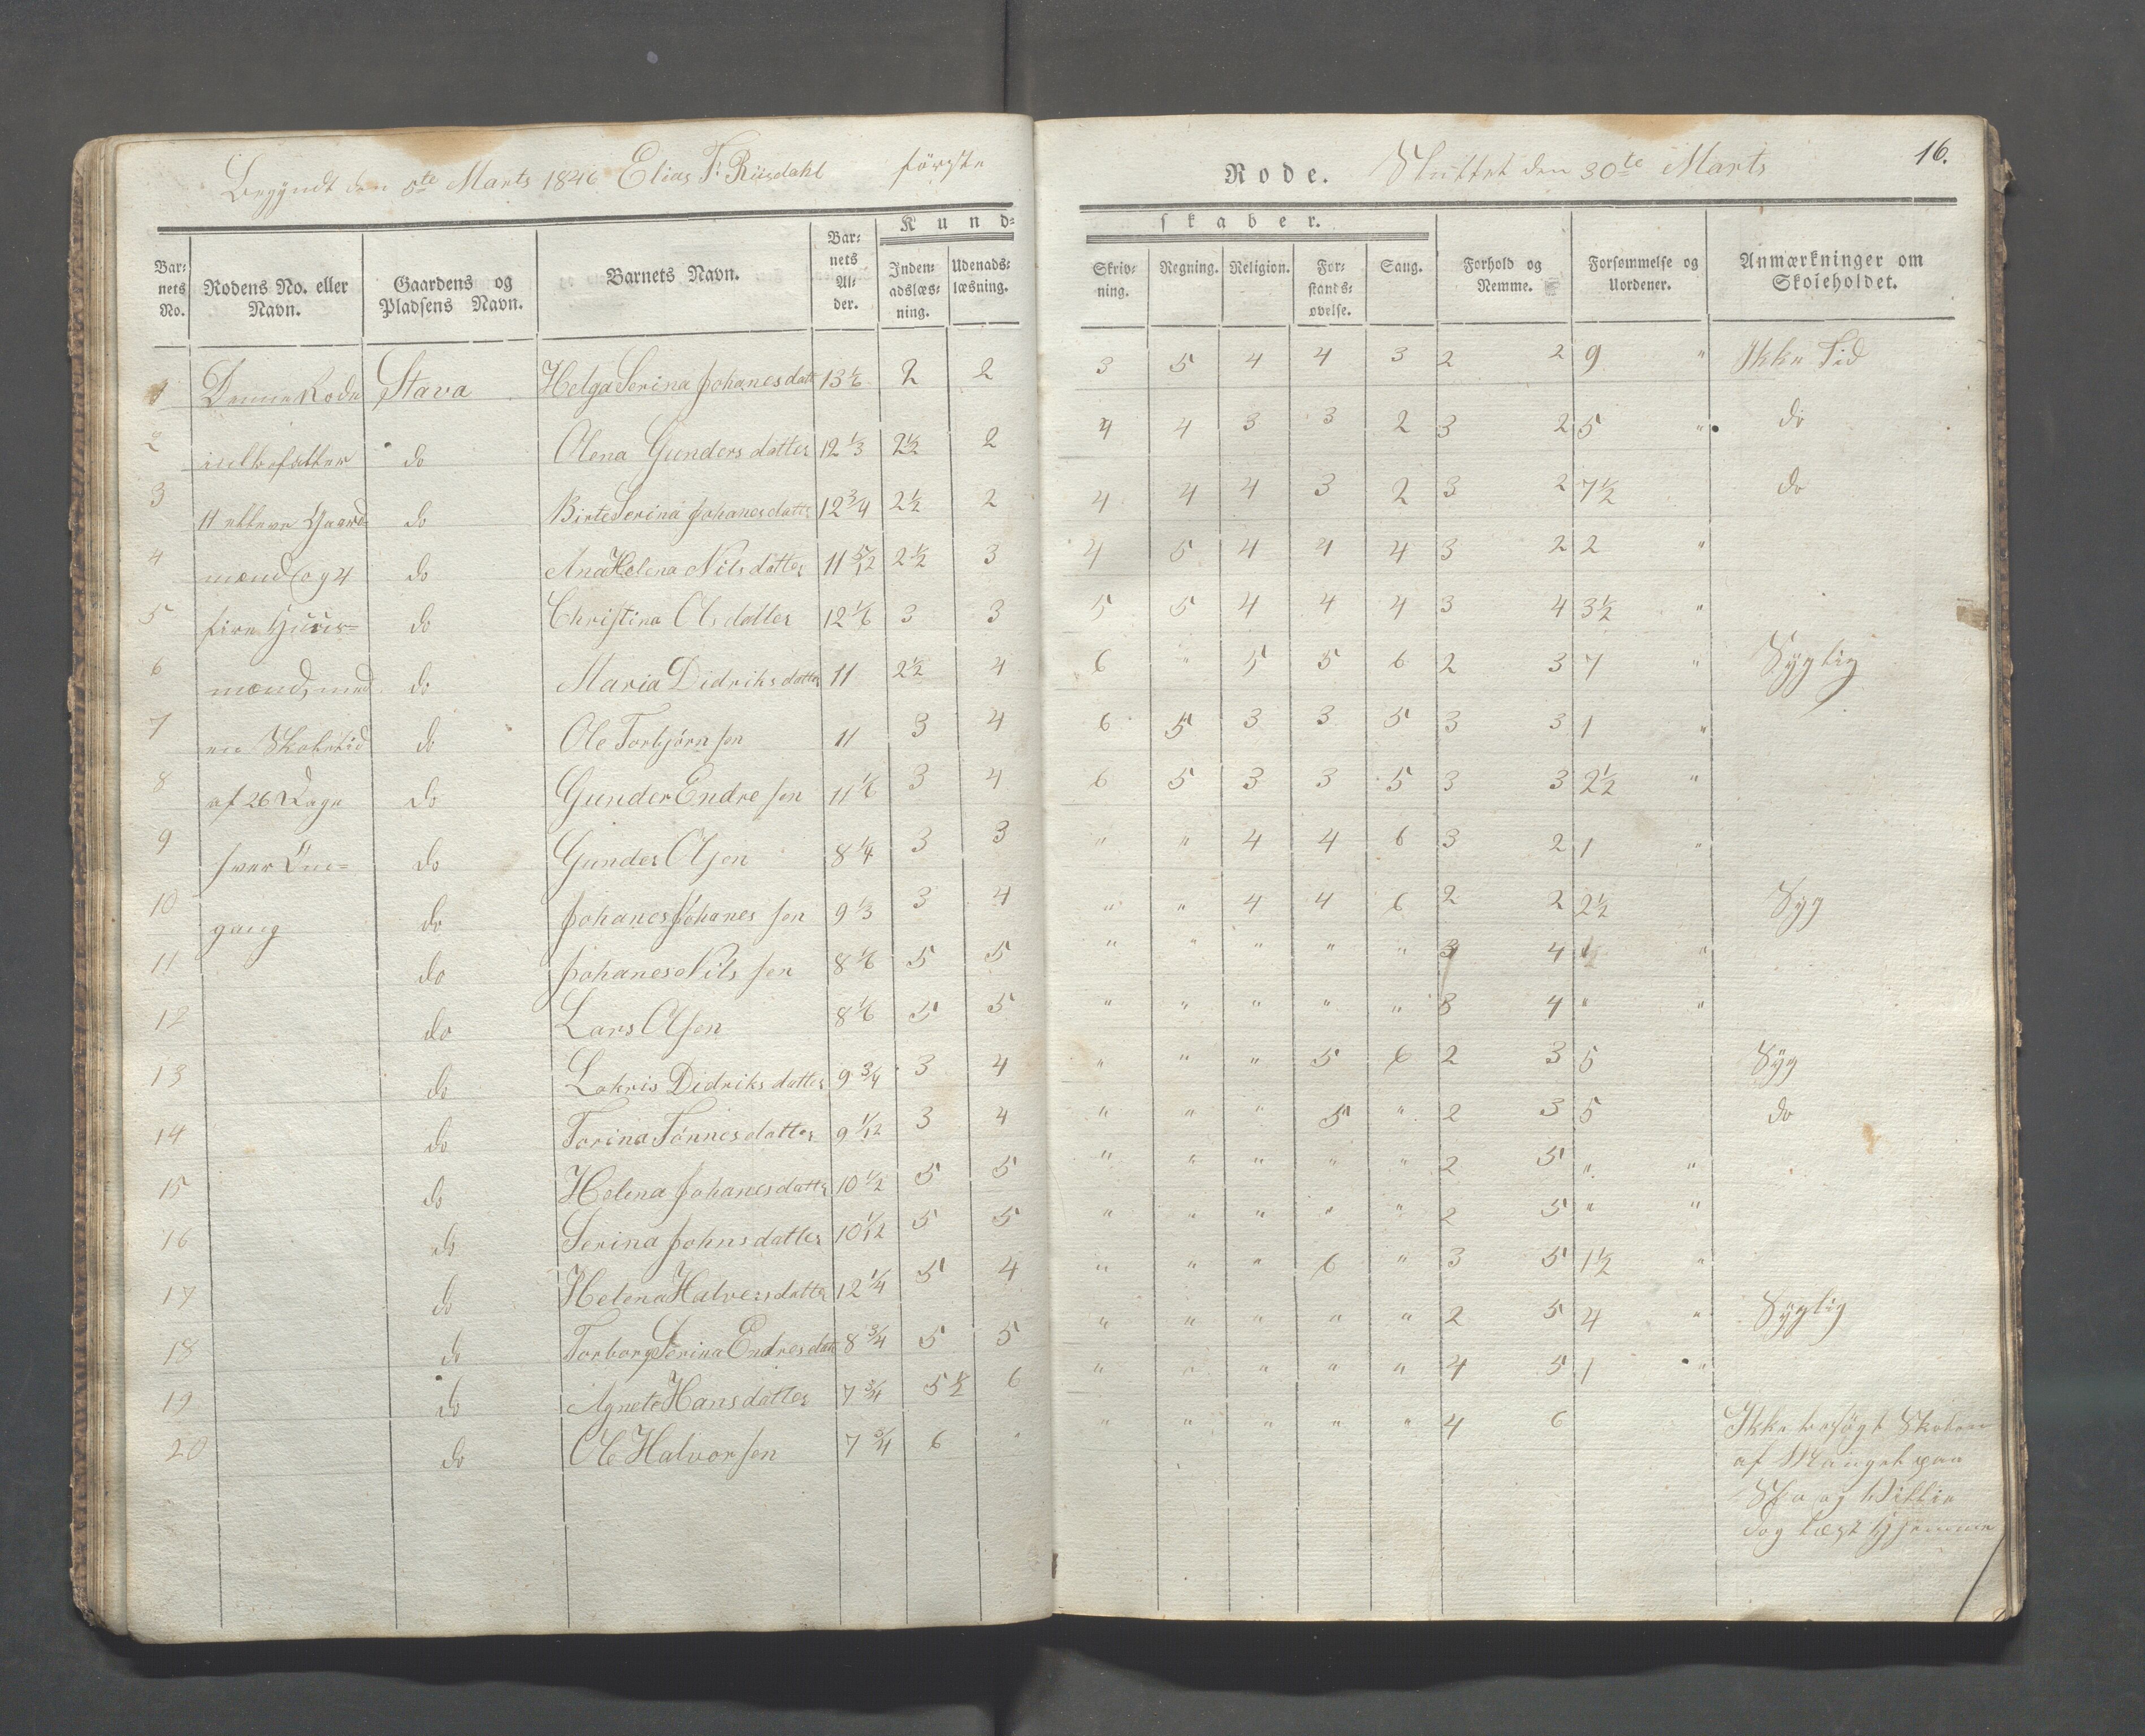 Begyndt den 5te Marts 1846 Elias T. Riisdahl første
Rode. Sluttet den 30te Marts 16.
Kund- skaber.
Barnets No. | Rodens No. eller Navn. | Gaardens og Pladsens Navn. | Barnets Navn. | Barnets Alder. | Indenadslæsning. | Udenadslæsning. | Skrivning. | Regning. | Religion. | Forstandsøvelse. | Sang. | Forhold og Nemme. | Forsømmelse og Uordener. | Anmærkninger om Skoleholdet.
1 Denne Rode Stava Helga Serina Johanesdatt 13 1/6 2 2 3 5 4 4 3 2 2 9 " Ikke Tid
2 indbefatter do Olena Gundersdatter 12 1/3 2 1/2 2 4 4 3 3 2 3 2 5 " do
3 11 elleve Gaard- do Birte Serina Johanesdatter 12 3/4 2 1/2 2 4 4 4 3 2 3 2 7 1/2 do
4 mænd og 4 do Ana Helena Nilsdatter 11 5/12 2 1/2 3 4 5 4 4 4 3 2 2 "
5 fire Huus= do Christina Olsdatter 12 1/6 3 3 5 5 4 4 4 3 4 3 1/2 "
6 mænd, med do Maria Didriksdatter 11 2 1/2 4 6 " 5 5 6 2 3 7 " Syglig
7 en Skoletid do Ole Torbjørnsen 11 3 4 6 5 3 3 5 3 3 1 "
8 af 26 Dage do Gunder Endresen 11 1/6 3 4 6 5 3 3 5 3 3 2 1/2 "
9 hver Om= do Gunder Olsen 8 1/4 3 3 " " 4 4 6 3 2 1 "
10 gang do Johanes Johanessen 9 1/3 3 4 " " 4 4 6 2 2 2 1/2 Syg
11 do Johanes Nilssen 8 1/6 5 5 " " " " " 3 4 1/2 "
12 do Lars Olsen 8 1/6 5 5 " " " " " 3 4 " "
13 do Lakris Didriksdatter 9 3/4 3 4 " " " 5 6 2 3 5 Syg
14 do Torina Tønnesdatter 9 1/12 3 4 " " " 5 " 2 3 5 do
15 do Helena Johanesdatter 10 1/2 5 5 " " " " " 2 5 " "
16 do Serina Johnsdatter 10 1/12 5 5 " " " " " 2 5 " "
17 do Helena Halversdatter 12 1/4 5 4 " " " 6 " 3 5 1 1/2 "
18 do Torborg Serina Endresdatt 8 3/4 5 5 " " " " " 2 5 4 " Syglig
19 do Agnete Hansdatter 7 3/4 5 1/2 6 " " " " " 4 5 1 "
20 do Ole Halvorsen 7 3/4 6 " " " " " " 4 6 Ikke besøgt Skolen
af Mangel paa
Sko og
dog læst Hjemme